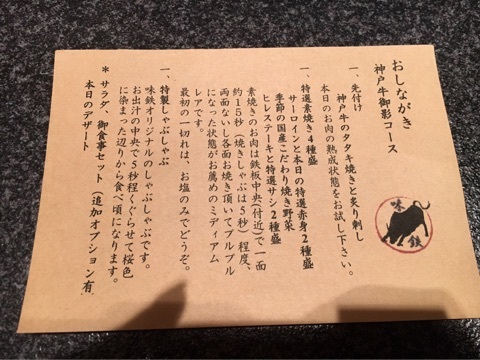 おしながき
神戸牛御影コース
一、先付け
神戸牛のタタキ焼きと炙り刺し
本日のお肉の熟成状態をお試し下さい。
一、特選素焼き4種盛
サーロインと本日の特選赤身2種盛
季節の国産こだわり焼き野菜
ヒレステーキと特選サシ2種盛
素焼きのお肉は鉄板中央(付近)で一面
約15秒(焼きしゃぶは5秒)程度、
両面ないし各面お焼き頂いてプルプル
になった状態がお薦めのミディアム
レアです。
最初の一切れは、お塩のみでどうぞ。
一、特製しゃぶしゃぶ
味鉄オリジナルのしゃぶしゃぶです。
お出汁の中央で5秒程くぐらせて桜色
に染まった辺りから食べ頃になります。
*サラダ、御食事セット(追加オプション有)
本日のデザート
味鉄